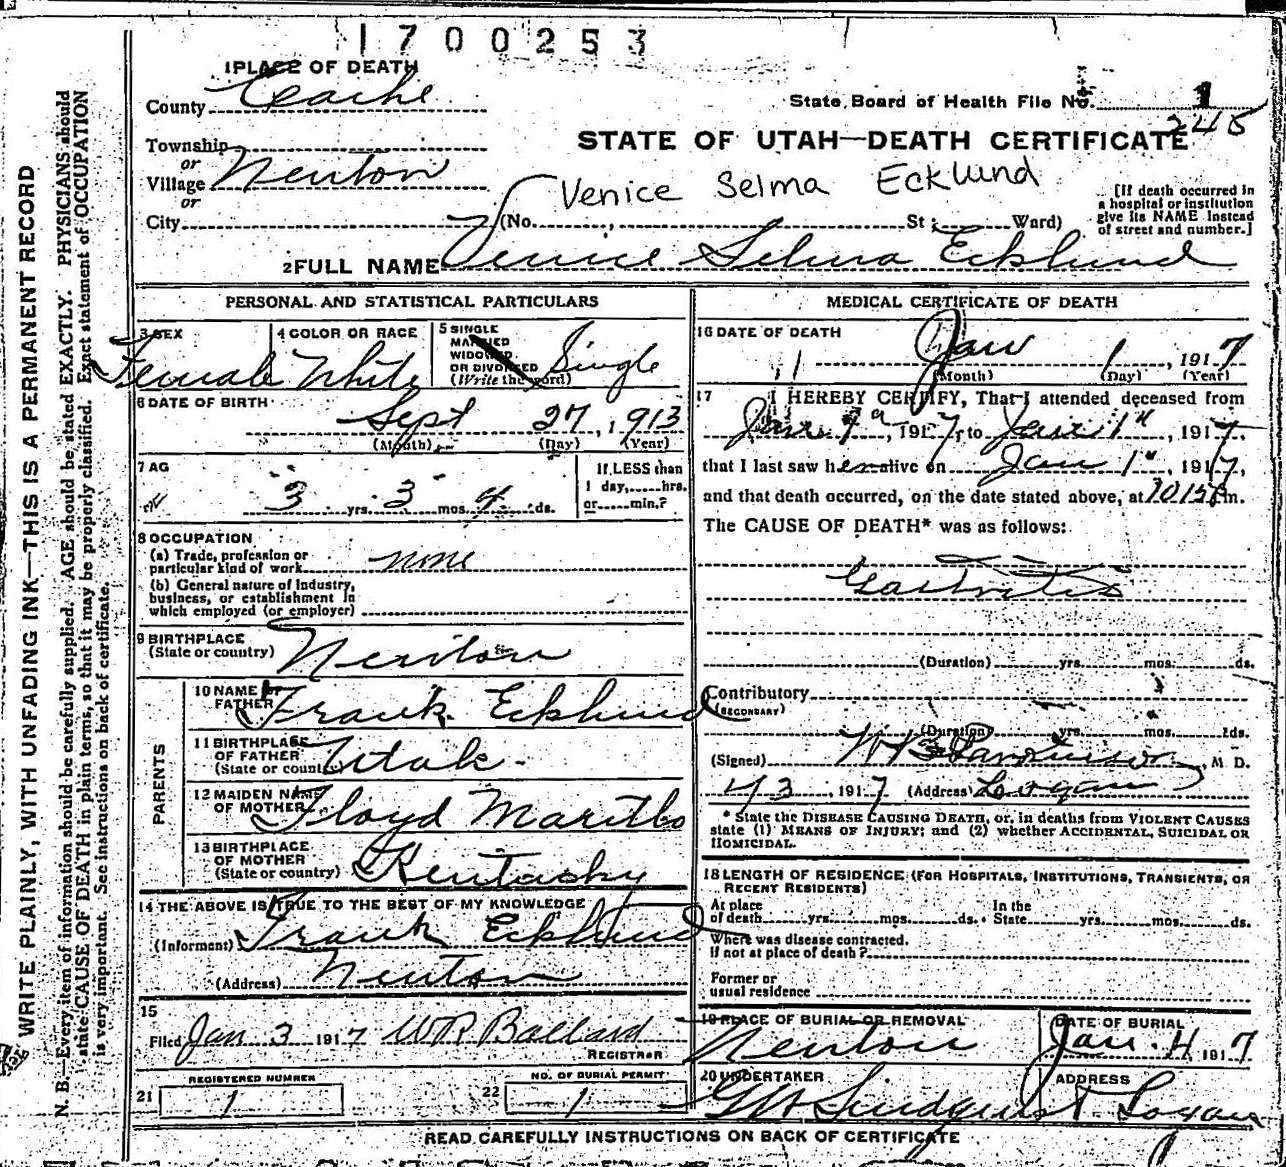 1700253
1 PLACE OF DEATH
County Cache
State Board of Health File No. 1
245
Township
or
Village Newton
or
STATE OF UTAH—DEATH CERTIFICATE
Venice Selma Ecklund
[If death occurred in
a hospital or institution
give its NAME instead
of street and number.]
City (No. , St ; Ward)
2 FULL NAME Venice Selma Ecklund
PERSONAL AND STATISTICAL PARTICULARS
3 SEX Female
4 COLOR OR RACE White
5 SINGLE
MARRIED
WIDOWED
OR DIVORCED
(Write the word) Single
6 DATE OF BIRTH
Sept 27, 1913
(Month) (Day) (Year)
7 AG
3 yrs. 3 mos. 4 ds.
If LESS than
1 day, hrs.
or min.?
8 OCCUPATION
(a) Trade, profession or
particular kind of work none
(b) General nature of Industry,
business, or establishment in
which employed (or employer)
9 BIRTHPLACE
(State or country) Newton
PARENTS
10 NAME OF
FATHER Frank Ecklund
11 BIRTHPLACE
OF FATHER
(State or country) Utah.
12 MAIDEN NAME
OF MOTHER Floyd Maritbo
13 BIRTHPLACE
OF MOTHER
(State or country) Kentucky
14 THE ABOVE IS TRUE TO THE BEST OF MY KNOWLEDGE
(Informant) Frank Ecklund
(Address) Newton
15
Filed Jan 3 1917 WR Ballard
REGISTRAR
21 REGISTERED NUMBER
1
22 NO. OF BURIAL PERMIT
1
MEDICAL CERTIFICATE OF DEATH
16 DATE OF DEATH
Jan 1, 1917
(Month) (Day) (Year)
17 I HEREBY CERTIFY, That I attended deceased from
Jan 1, 1917, to Jan 1, 1917,
that I last saw her alive on Jan 1, 1917,
and that death occurred, on the date stated above, at m.
The CAUSE OF DEATH* was as follows:
Gastritis
(Duration) yrs. mos. ds.
Contributory
(SECONDARY)
(Duration) yrs. mos. ds.
(Signed) M. D.
1/3, 1917 (Address) Logan
* State the DISEASE CAUSING DEATH, or, in deaths from VIOLENT CAUSES
state (1) MEANS OF INJURY; and (2) whether ACCIDENTAL, SUICIDAL OR
HOMICIDAL.
18 LENGTH OF RESIDENCE (FOR HOSPITALS, INSTITUTIONS, TRANSIENTS, OR
RECENT RESIDENTS)
At place
of death yrs. mos. ds. In the
State yrs. mos. ds.
Where was disease contracted.
if not at place of death?
Former or
usual residence
19 PLACE OF BURIAL OR REMOVAL
Newton
DATE OF BURIAL
Jan. 4 1917
20 UNDERTAKER
GW Lindquist
ADDRESS
Logan
READ CAREFULLY INSTRUCTIONS ON BACK OF CERTIFICATE
WRITE PLAINLY, WITH UNFADING INK—THIS IS A PERMANENT RECORD
N. B.—Every item of information should be carefully supplied. AGE should be stated EXACTLY. PHYSICIANS should
state CAUSE OF DEATH in plain terms, so that it may be properly classified. Exact statement of OCCUPATION
is very important. See instructions on back of certificate.